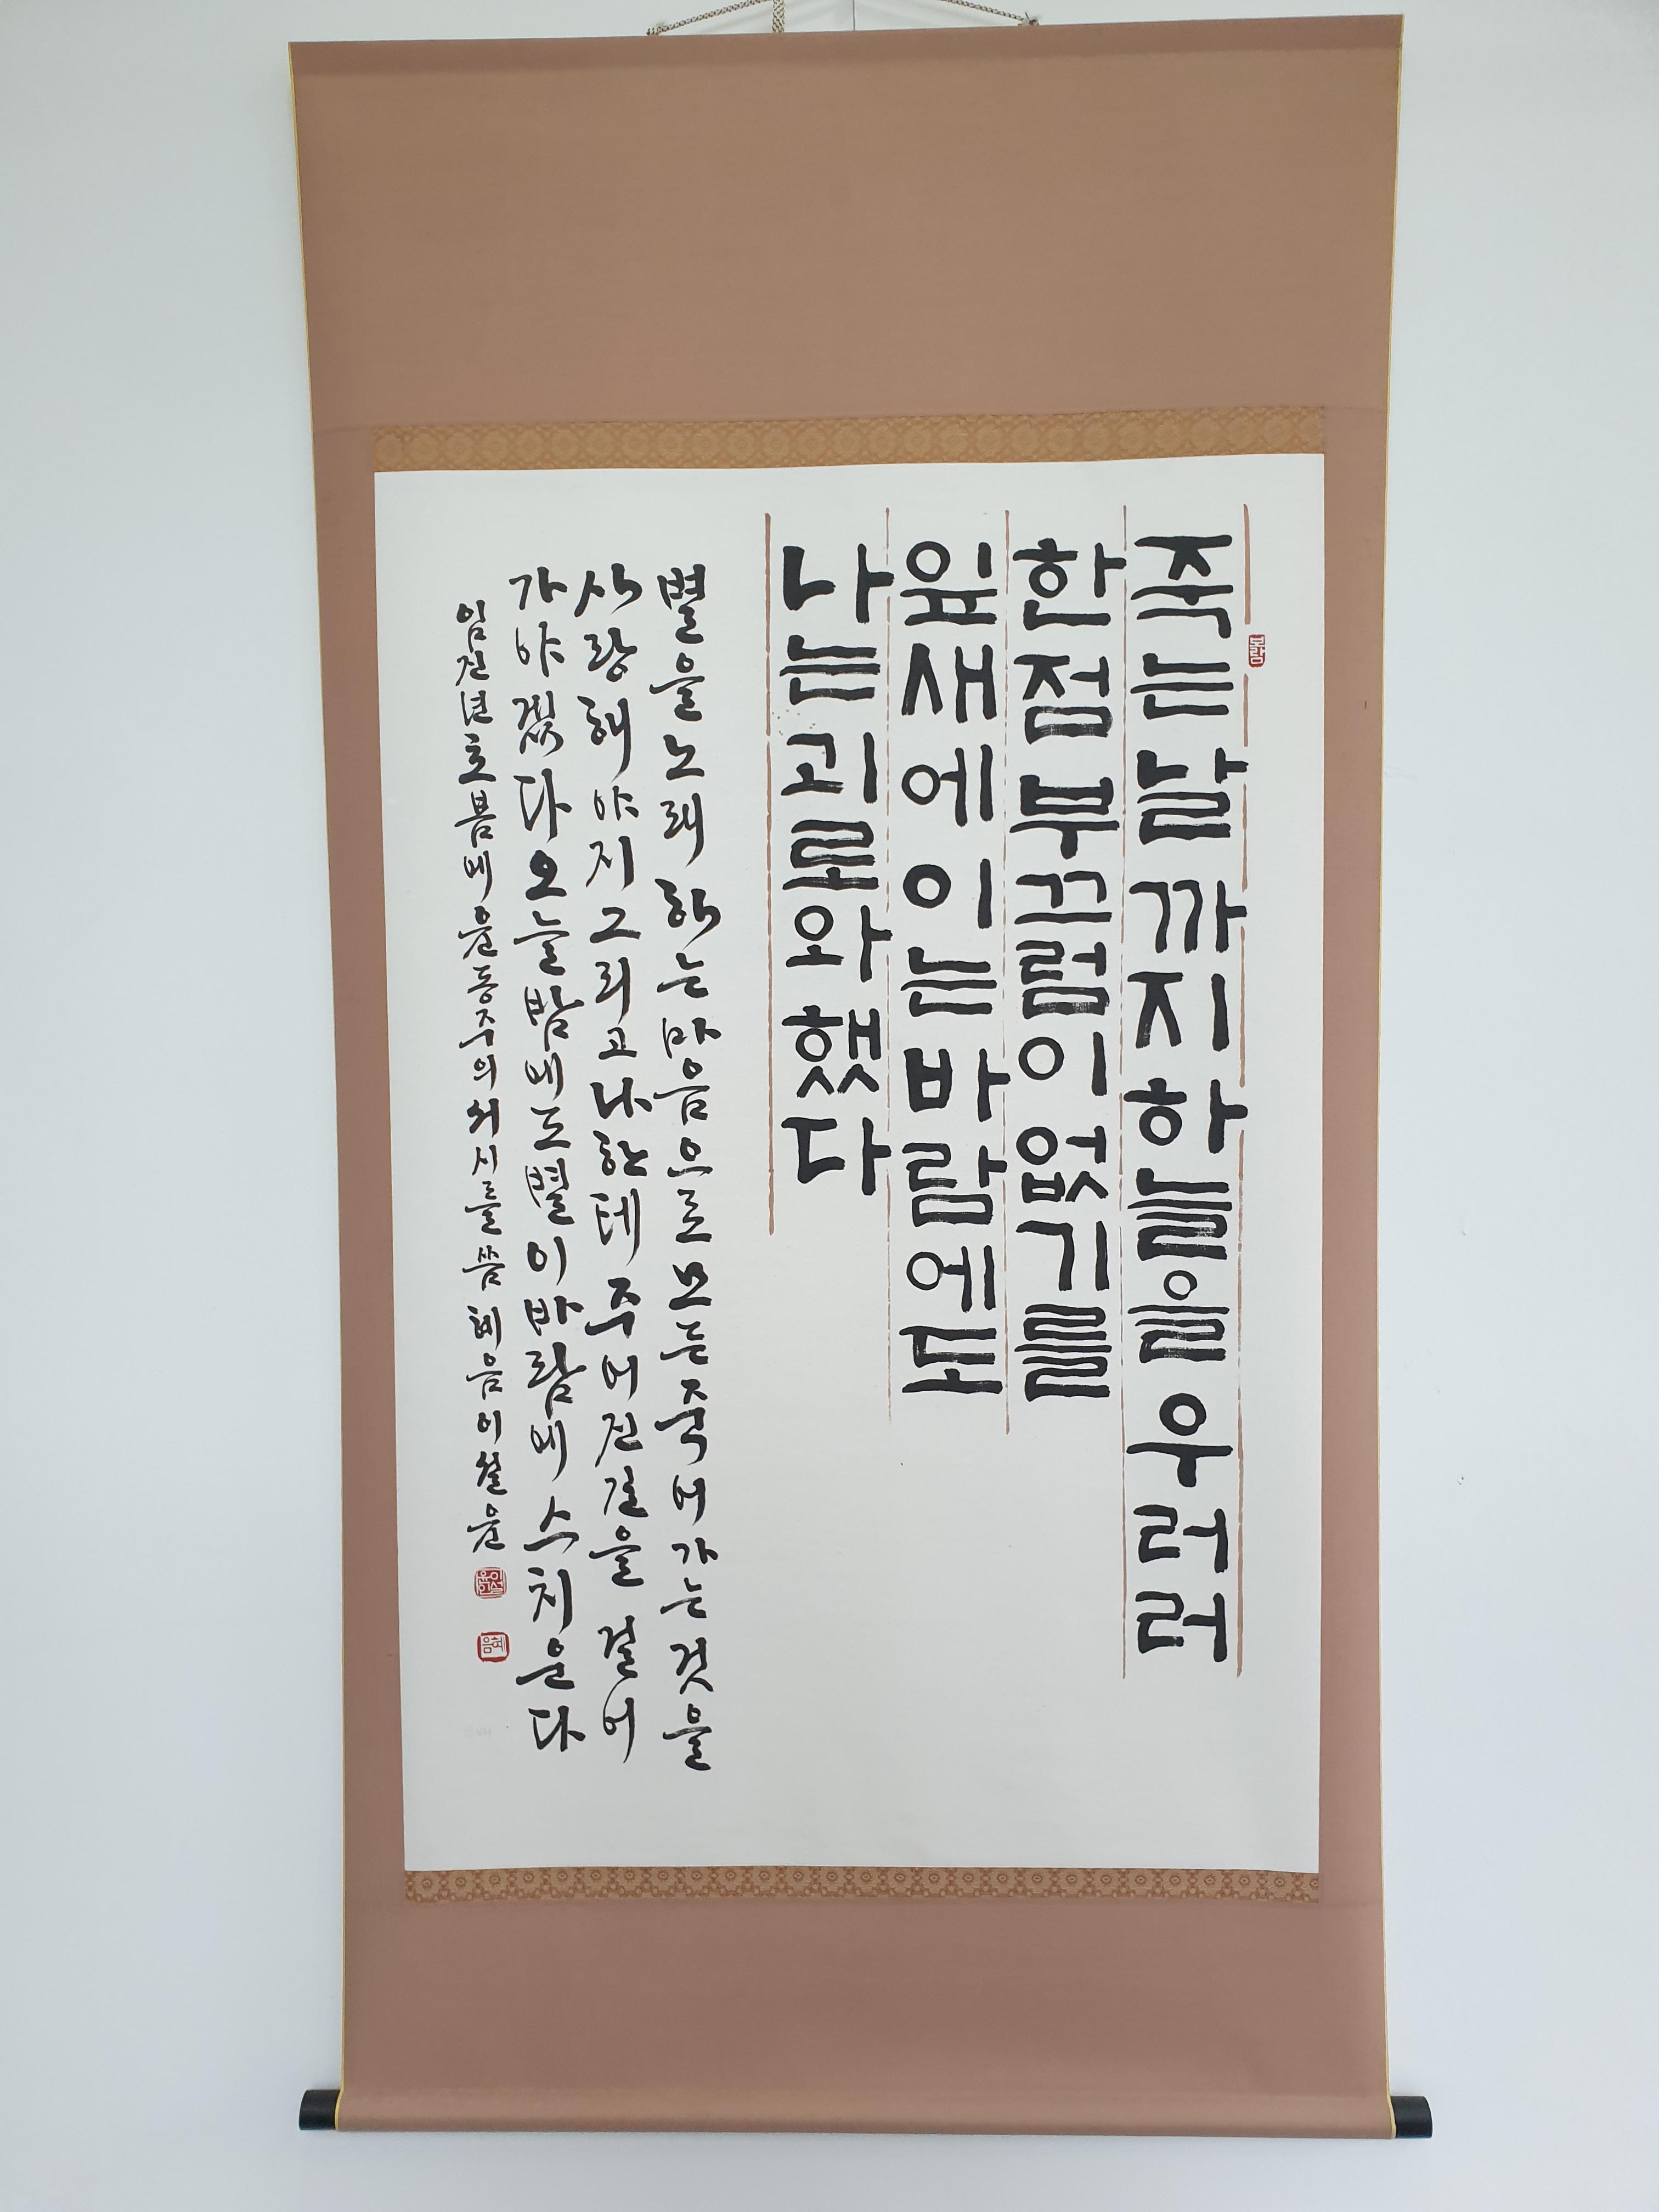 죽는날 까지하늘을 우러러
한점 부끄럼이 없기를
잎새에 이는 바람에도
나는 괴로와 했다
별을 노래 하는 마음으로 모든 죽어 가는 것을
사랑해야지 그리고 나한테 주어진 길을 걸어
가야겠다 오늘밤에도 별이 바람에 스치운다
임진년 초봄에 윤동주의 서시를 씀 혜음 이설윤
이설윤
혜음